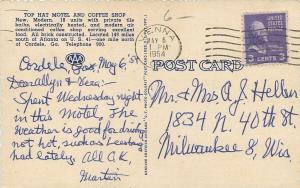 TOP HAT MOTEL AND COFFEE SHOP
New. Modern. 18 units with private tile
baths, electrically heated, and modern air
conditioned coffee shop serving excellent
food. All brick constructed. Located 149 miles
south of Atlanta on U. S. 41—one mile north
of Cordele, Ga. Telephone 900.
AAA
6
VIENNA
MAY 6
1 PM
1954
3 CENTS 3
POST CARD
Cordele Ga. May 6 '54
Dear Ally & Vera:-
Spent Wednesday night
in this Motel. The
Weather is good for driving
not hot, such as Leesburg
had lately. All O.K.
Martin
Mr. & Mrs A. J. Heller
1834 N. 40th St
Milwaukee 8, Wis